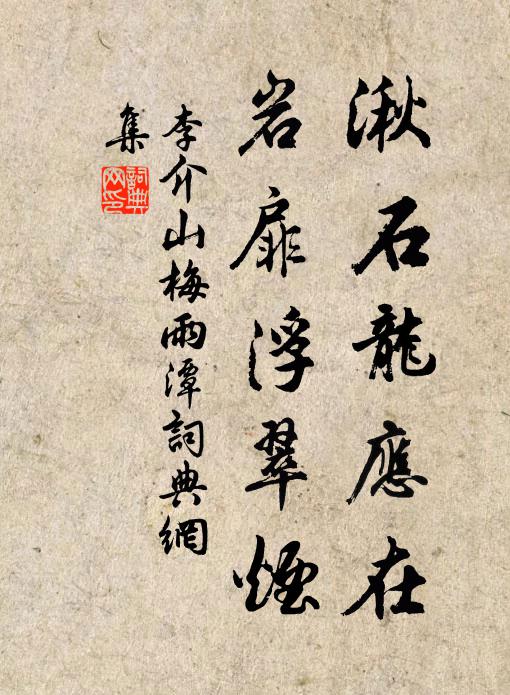 湫石龍應在
岩扉浮翠煙
李介山梅雨潭詞典網
集
詞典網印